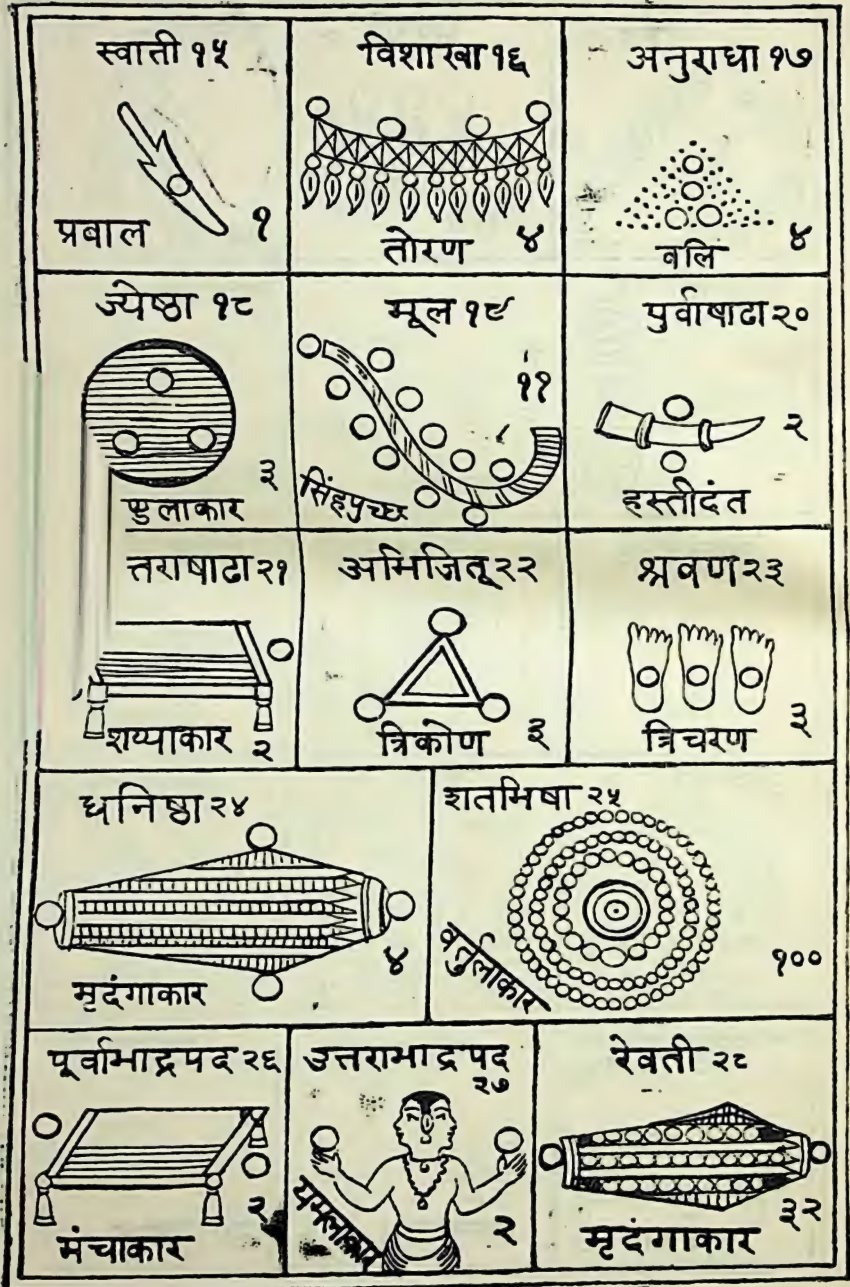 स्वाती १५
प्रबाल १
विशाखा १६
तोरण ४
अनुराधा १७
वलि ४
ज्येष्ठा १८
३
मूल १९
११
सिंहपुच्छ
पुर्वाषाढा २०
२
हस्तीदंत
त्तराषाढा २१
शय्याकार २
अभिजित् २२
त्रिकोण ३
श्रवण २३
त्रिचरण ३
धनिष्ठा २४
४
मृदंगाकार
शतभिषा २५
वर्तुलाकार
१००
पूर्वाभाद्रपद २६
२
मंचाकार
उत्तराभाद्रपद
२७
यमलाकार
२
रेवती २८
३२
मृदंगाकार